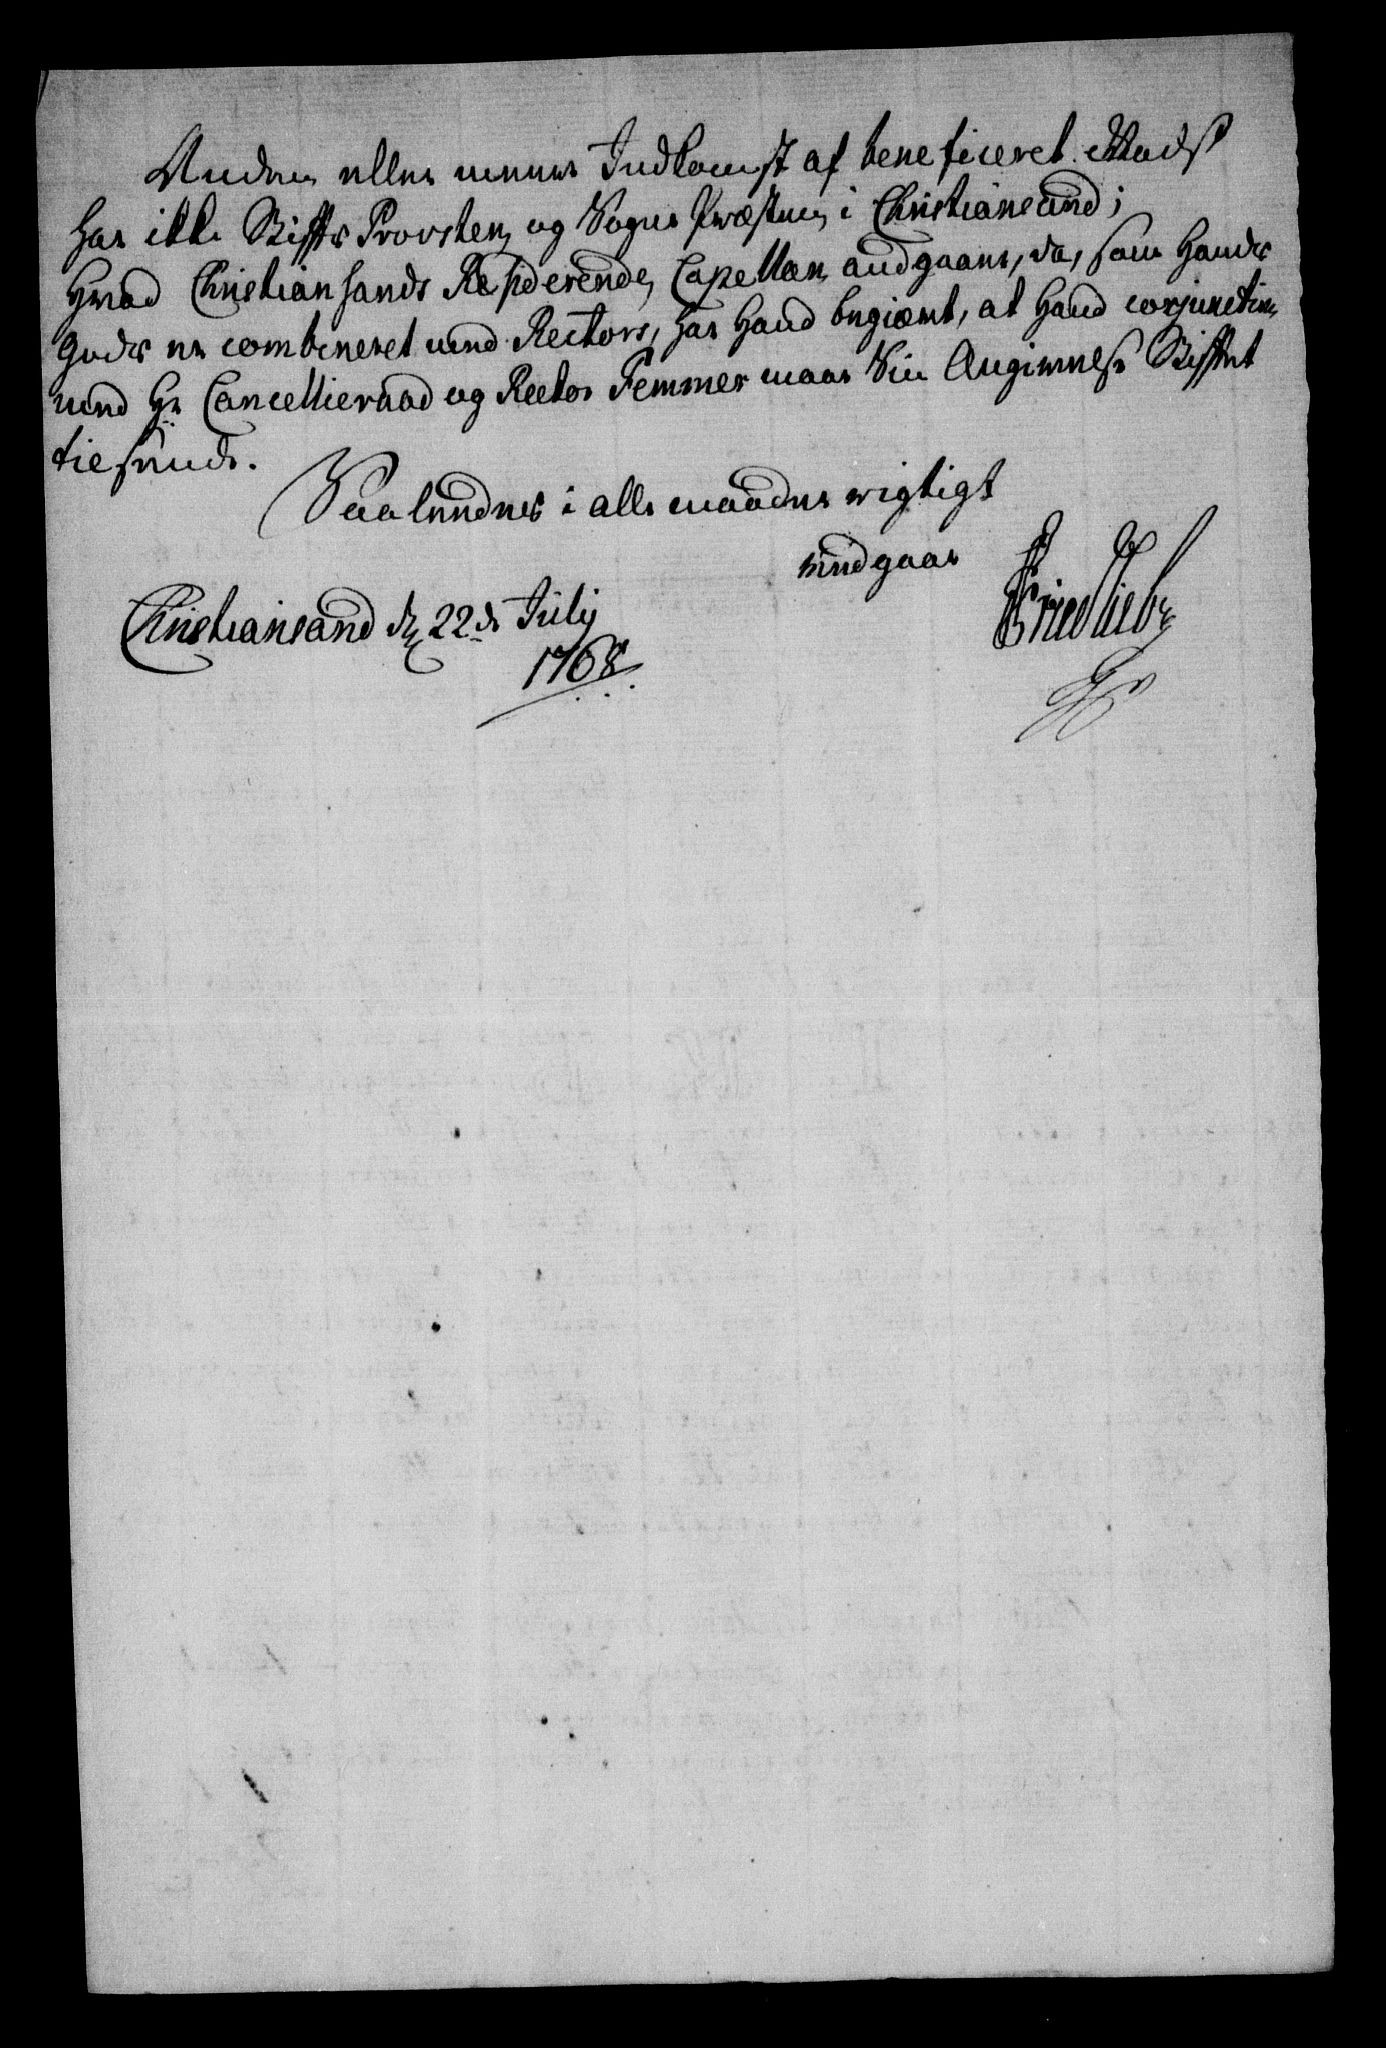 Anden eller meere Indkomst af beneficeret Gods
har ikke Stifts Provsten og Sogne Præsten i Christiansand;
Hvad Christiansands Residerende Capellan andgaaer, da, som Hands
Gods er combineret med Rectors, har Hand begiært, at Hand conjunctim
med Hr Cancellieraad og Rector Femmer maae Sin Angivelse Stiftet
tilsende.
Saaledes i alle maader rigtigt
meedgaar
Christiansand d 22de July
1768
Friedlieb